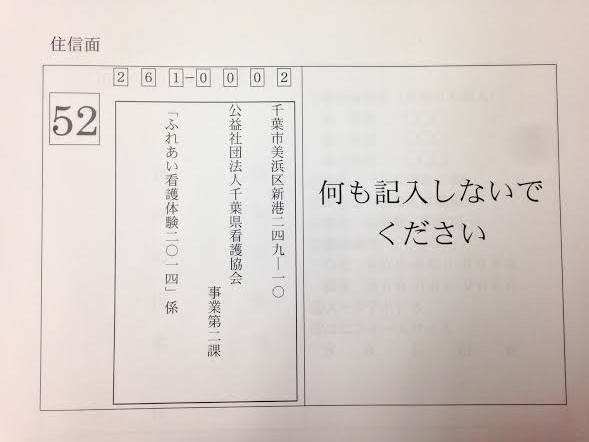 住信面
52
261-0002
千葉市美浜区新港二四九―一〇
公益社団法人千葉県看護協会
事業第二課
「ふれあい看護体験二〇一四」係
何も記入しないで
ください